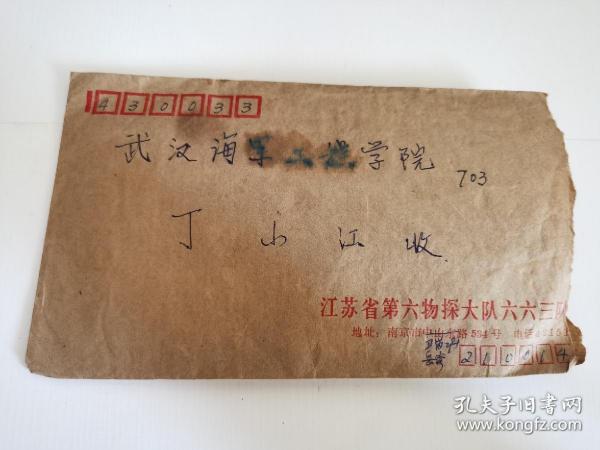 430033
武汉海军工程学院
703
丁小江 收
江苏省第六物探大队六六三队
地址：南京市中山东路534号 电话
210014
孔夫子旧书网
www.kongfz.com